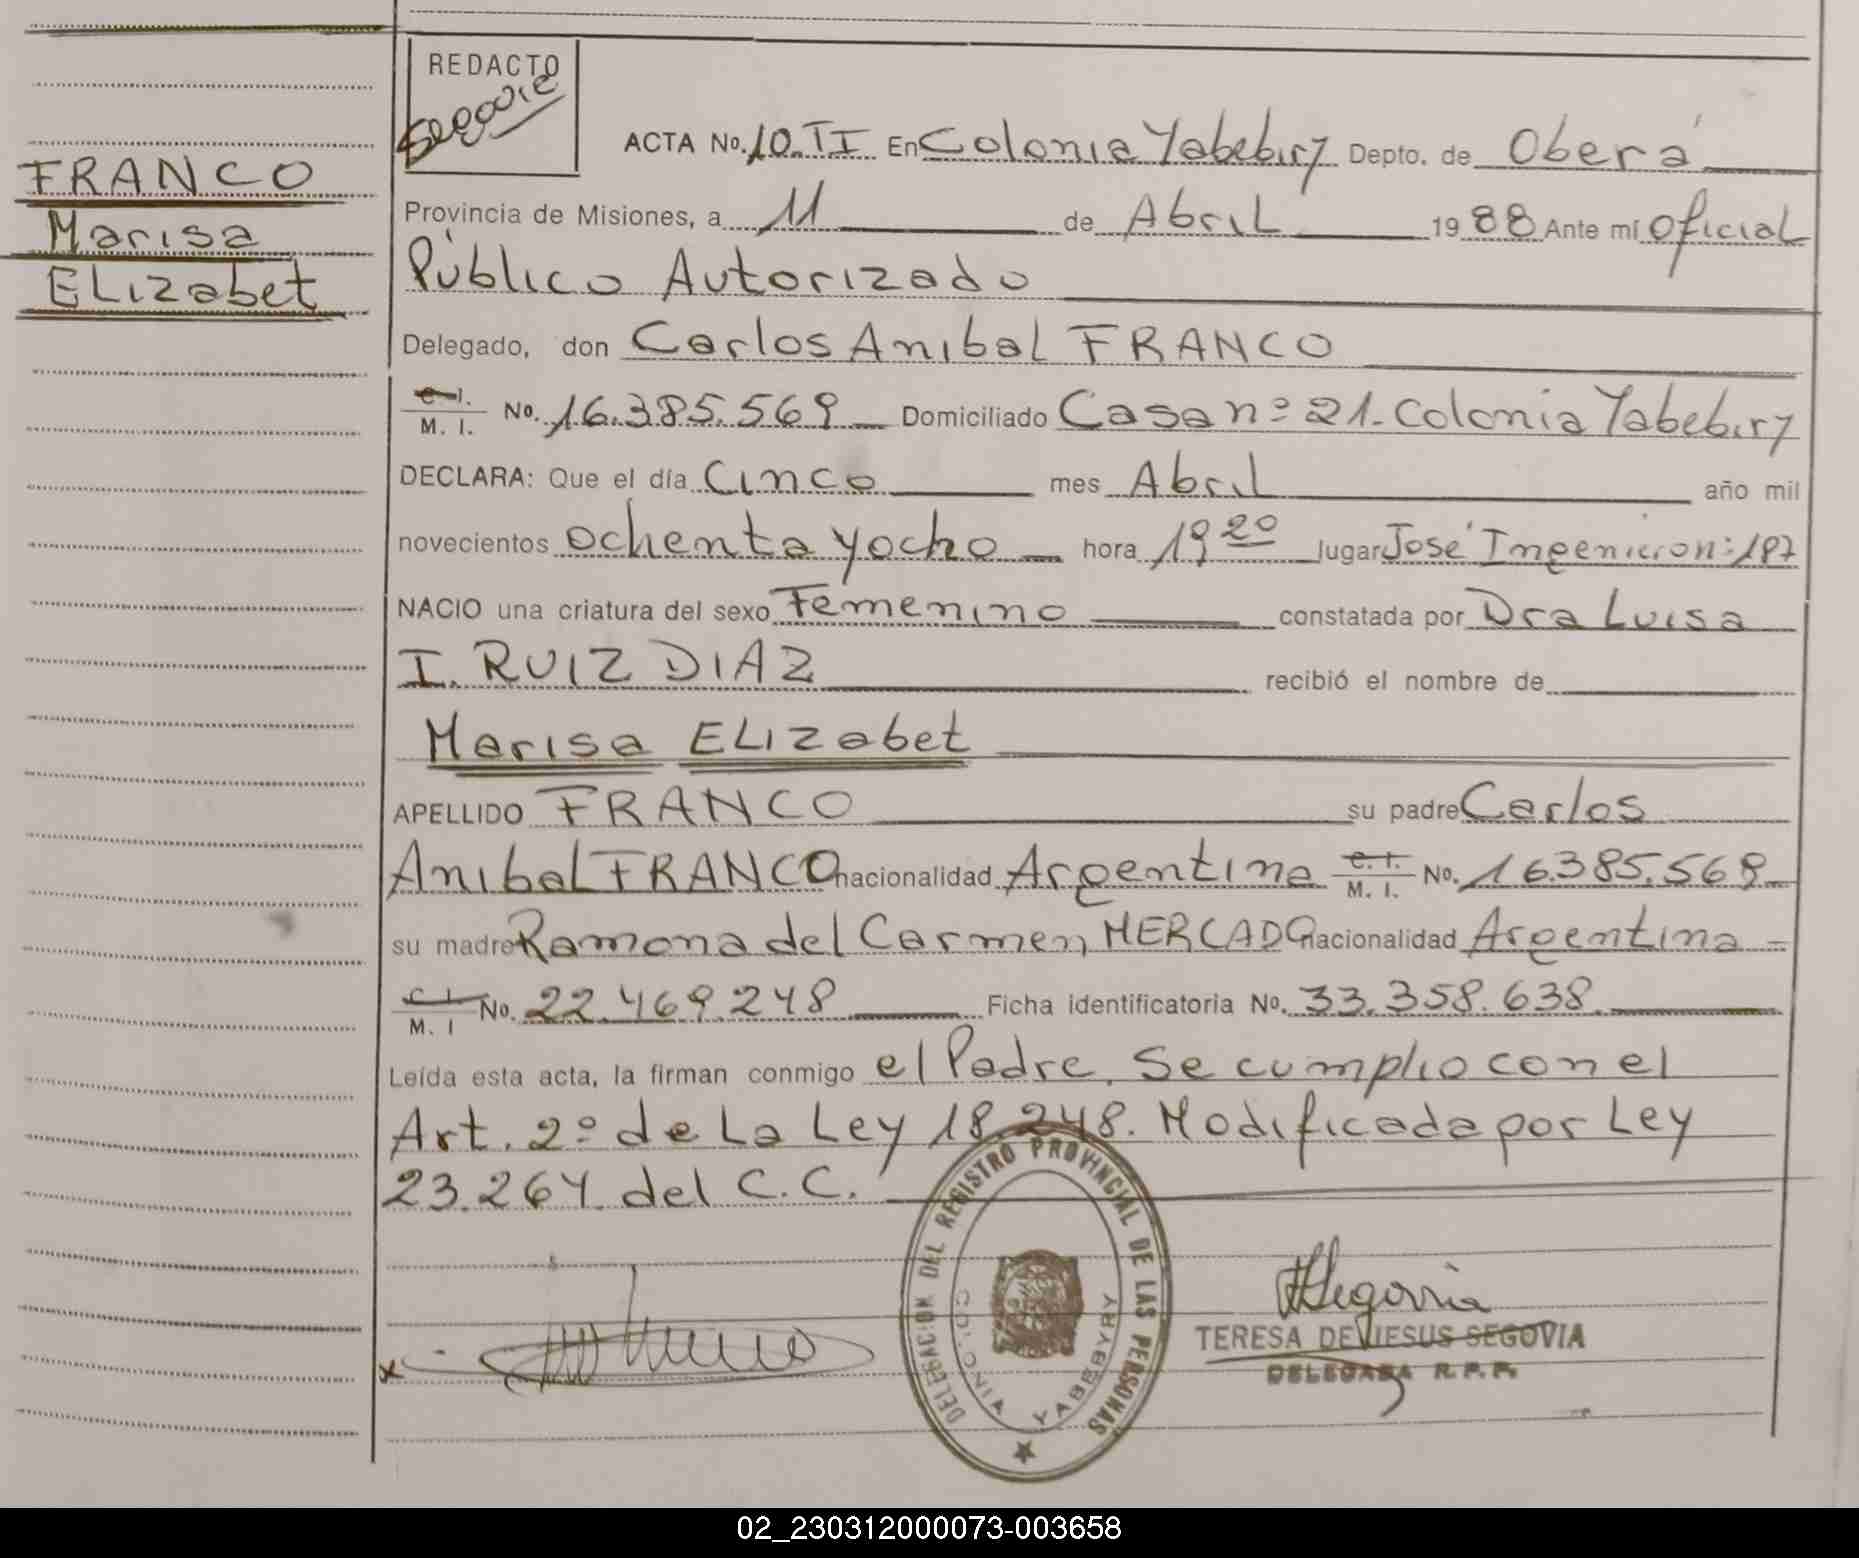 REDACTO
Segovia
FRANCO
Marisa
ELizabet
ACTA No. 10. TI En Colonia Yabebiry Depto. de Oberá
Provincia de Misiones, a 11 de Abril 1988 Ante mí Oficial
Público Autorizado
Delegado, don Carlos Anibal FRANCO
C. I. M. I. No. 16.385.569 Domiciliado Casa nº 21. Colonia Yabebiry
DECLARA: Que el día Cinco mes Abril año mil
novecientos ochenta y ocho hora 19 20 lugar José Ingenieros n: 187
NACIO una criatura del sexo Femenino constatada por Dra Luisa
I. RUIZ DIAZ recibió el nombre de
Marisa ELizabet
APELLIDO FRANCO su padre Carlos
Anibal FRANCO nacionalidad Argentina C. I. M. I. No. 16.385.569
su madre Ramona del Carmen MERCADO nacionalidad Argentina
C. I. M. I No. 22.469.248 Ficha identificatoria No. 33.358.638
Leída esta acta, la firman conmigo el Padre. Se cumplio con el
Art. 2º de La Ley 18.248. Modificada por Ley
23.264 del C. C.
DELEGACION DEL REGISTRO PROVINCIAL DE LAS PERSONAS
COLONIA YABEBYRY
x
TSegovia
TERESA DE JESUS SEGOVIA
DELEGADA R.P.P.
02_230312000073-003658